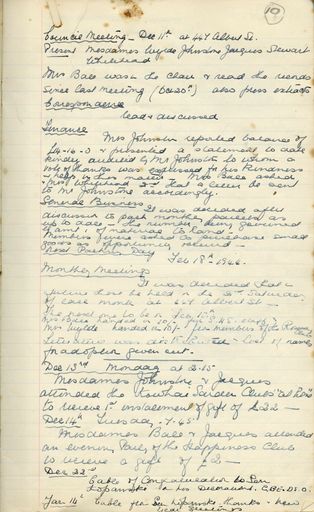 10
Council Meeting - Dec 11th at 44Y Albert St.
Present Mesdames Wylde Johnstone Jacques Stewart
Whitehead
Mrs Bale was in the chair & read the records
since last meeting (Oct 20th) also press extracts
Correspondence
read & discussed
Finance
Mrs Johnston reported balance of
£4-14-3 & presented a statement to date
kindly audited by Mr Johnston to whom a
vote of thanks was expressed for his kindness
& help in this matter - Mrs Bale asked
& Mrs Whitehead 2nd that a letter be sent
to Mr Johnstone accordingly.
General Business
It was decided after
discussion to pack monthly parcels as
up to date - the number being governed
by amt of material to hand.
Members were asked to purchase small
goods as opportunity
Next Packing Day
Feb 18th 1946.
Monthly Meetings
It was decided that in
future these be held on the 3rd Saturday
of each month at 44Y Albert St -
The next one to be in Feb 15th -
Mrs Bale handed in
Mrs Wylde handed in 10/- for members of the
Literature was distributed - list of names
for adoption given out.
Dec 13th Monday at 2.15
Mesdames Johnstone & Jacques
attended the Garden Club's "At Home"
to receive 1st instalment of gift of £22 -
Dec 14th Tuesday 7.45
Mesdames Bale & Jacques attended
an evening Party of the Happiness Club
to receive a gift of £2 -
Dec 22nd
Cable of Congratulation to Gen
Kopanski to his Decoration C.B.E. D.S.O.
Jan 14th Cable fr Gen Kopanski thanks - New
Year Greetings